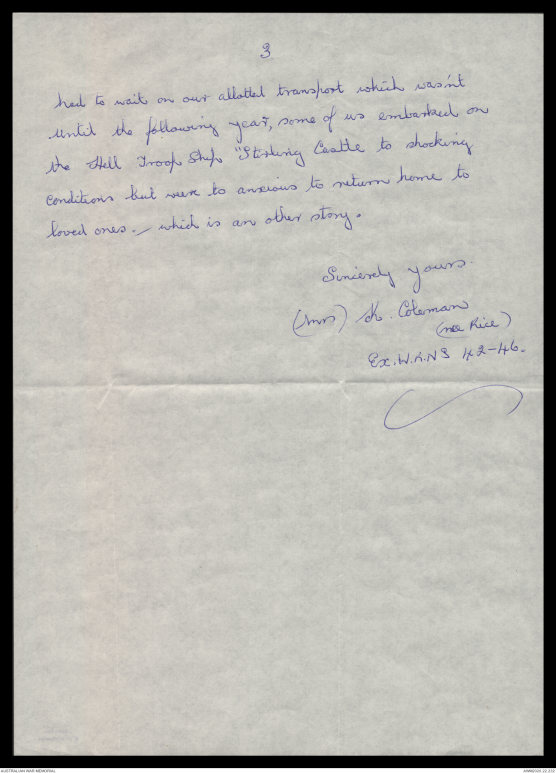 3
had to wait on our allotted transport which wasn't
until the following year, some of us embarked on
the Hell Troop Ship "Stirling Castle to shocking
conditions but were to anxious to return home to
loved ones. - which is an other story.
Sincerely yours.
(Mrs) K. Coleman
(nee Rice)
Ex. W.R.N.S 42-46.
AUSTRALIAN WAR MEMORIAL